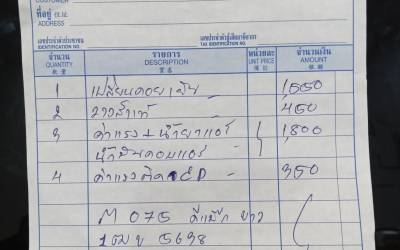 CUSTOMER
ที่อยู่
เลขประจำตัวประชาชน เลขประจำตัวผู้เสียภาษีอากร
IDENTIFICATION NO. TAX IDENTIFICATION NO.
จำนวน รายการ หน่วยละ จำนวนเงิน
QUANTITY DESCRIPTION UNIT PRICE AMOUNT
1 เปลี่ยนคอยเย็น
2 450
3 ค่าแรง + น้ำยาแอร์ 1,800
น้ำมันคอมแอร์
4 ค่าแรงติด 350
M 075 ดีแม็ก ขาว
5698